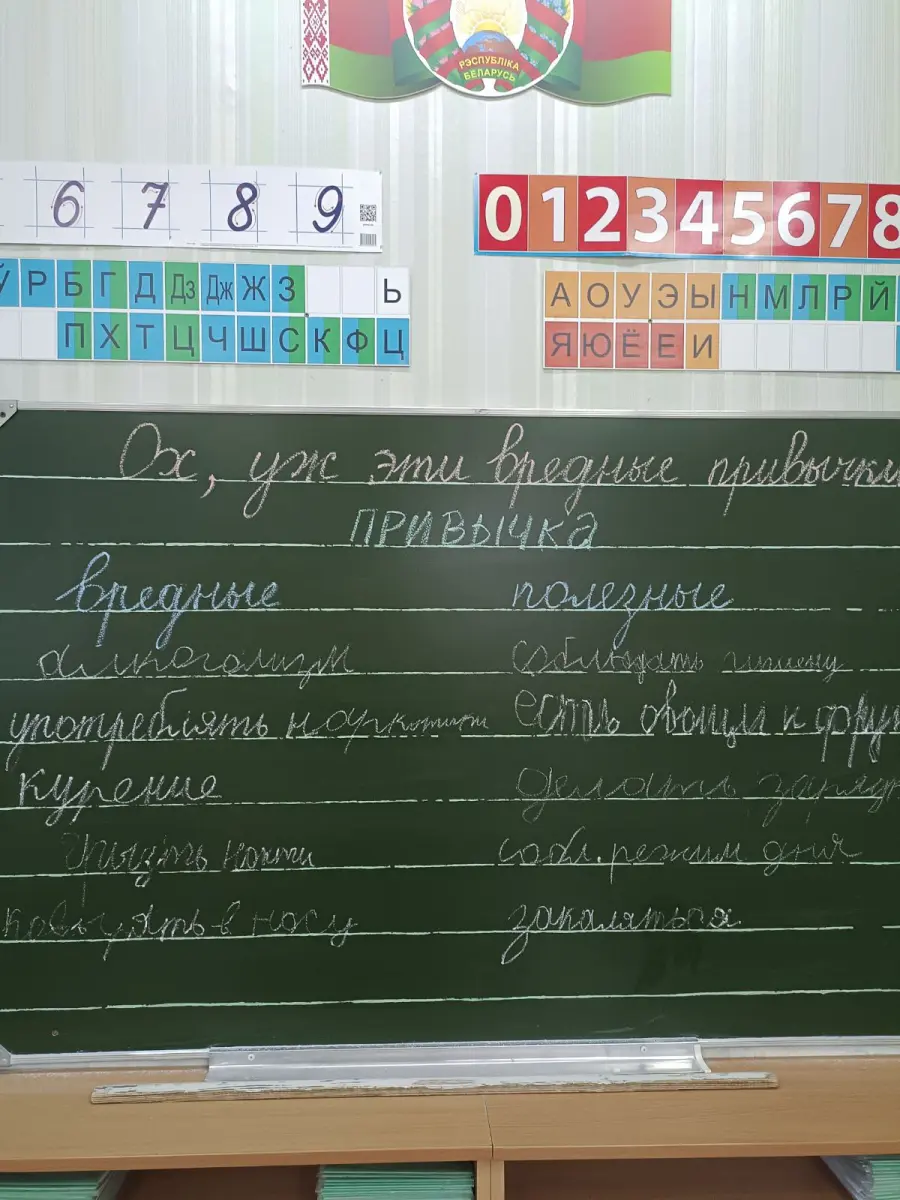 РЭСПУБЛІКА
БЕЛАРУСЬ
6 7 8 9
0 1 2 3 4 5 6 7 8
Ў Р Б Г Д Дз Дж Ж З Ь
П Х Т Ц Ч Ш С К Ф Ц
А О У Э Ы Н М Л Р Й
Я Ю Ё Е И
Ох, уж эти вредные привычки
ПРИВЫЧКА
вредные полезные
алкоголизм соблюдать гигиену
употреблять наркотики есть овощи и фрук
курение делать заряд
грызть ногти собл. режим дня
ковырять в носу закаляться